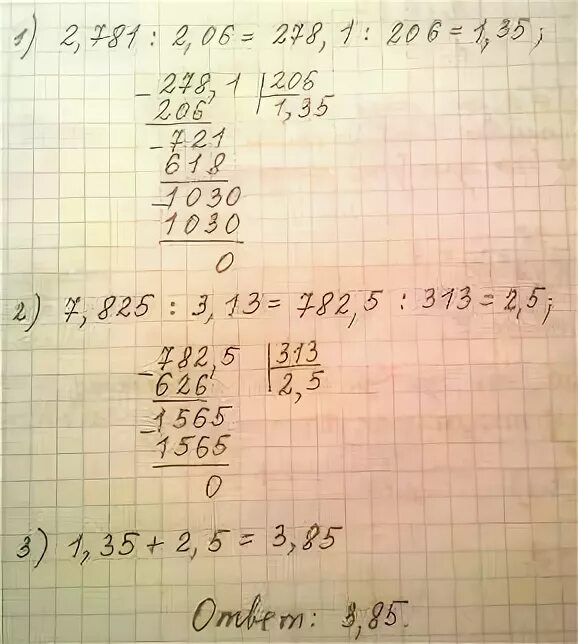 1) 2,781 : 2,06 = 278,1 : 206 = 1,35;
- 278,1 | 206
206 1,35
- 721
618
- 1030
1030
0
2) 7,825 : 3,13 = 782,5 : 313 = 2,5;
- 782,5 | 313
626 2,5
- 1565
1565
0
3) 1,35 + 2,5 = 3,85
Ответ: 3,85.